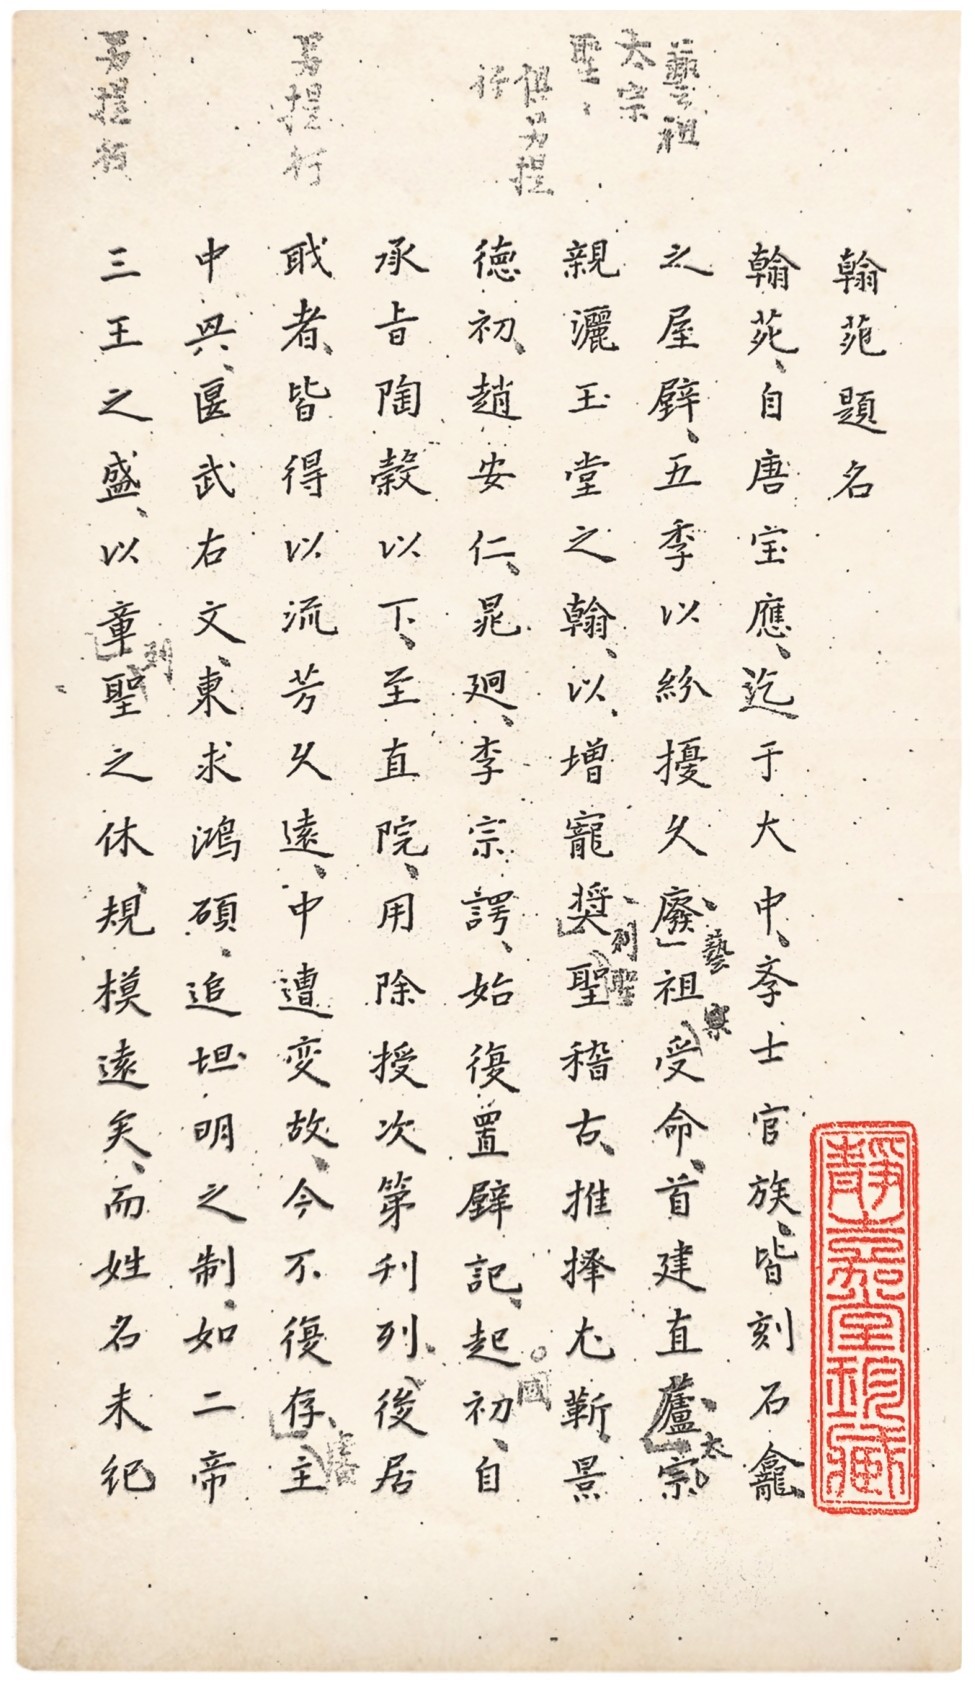 翰苑題名
翰苑、自唐宝應、迄于大中、斈士官族、皆刻石龕
之屋壁、五季以紛擾久廢、祖受命、首建直廬、宗
親灑玉堂之翰、以増寵奨、聖稽古、推擇尤靳、景
徳初、趙安仁、晁迥、李宗諤、始復置壁記、起初、自
承旨陶穀以下、至直院、用除授次第刋列、後居
職者、皆得以流芳久遠、中遭変故、今不復存、主
中興、偃武右文、東求鴻碩、追坦明之制、如二帝
三王之盛、以章聖之休、規模遠矣、而姓名未紀
藝祖
太宗
聖〻
俱另提
行
另提行
另提行
藝
太
列聖
國
列
靜嘉堂珍藏